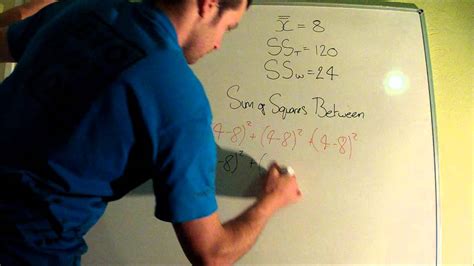 X̿ = 8
SS_T = 120
SS_W = 24
Sum of Squares Between
4-8)² + (4-8)² + (4-8)²
-8)² + (